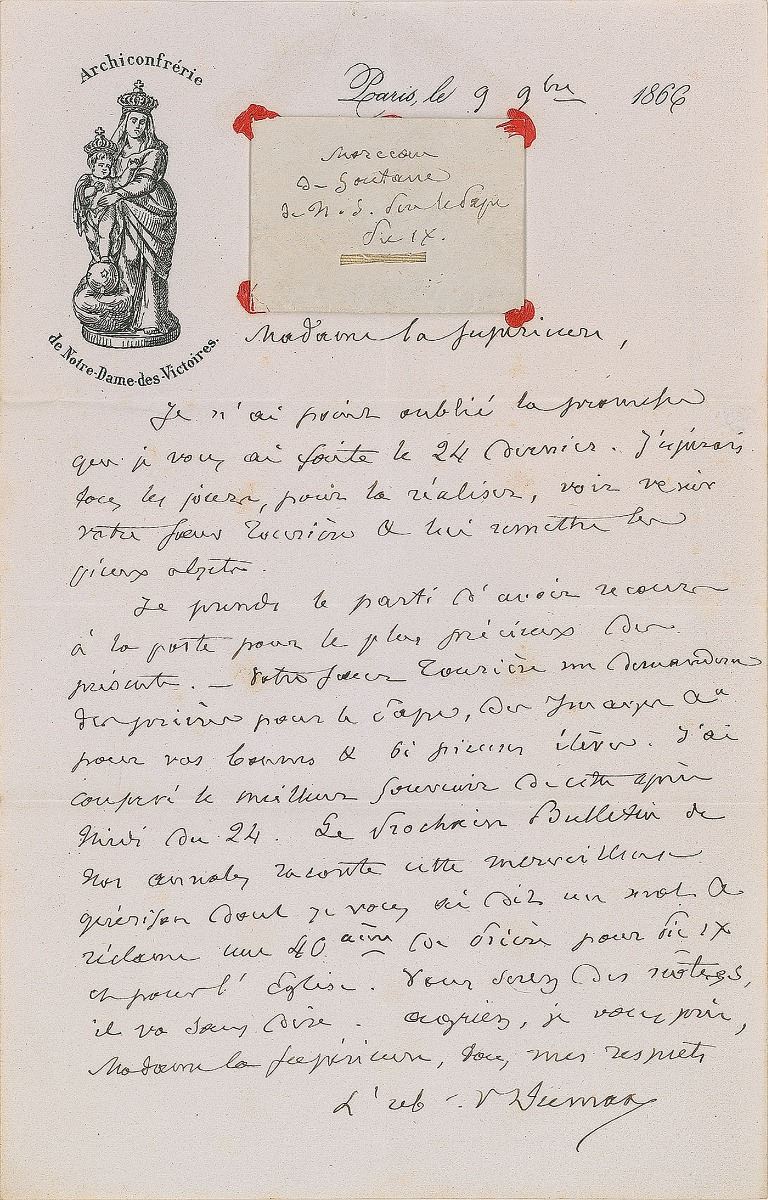 Archiconfrérie
de Notre-Dame-des-Victoires.
Paris, le 9 9bre 1866
Morceau
de Soutane
de N. S. P. le Pape
Pie IX.
Madame la Supérieure,
Je n'ai point oublié la promesse
que je vous ai faite le 24 dernier. J'espérais
tous les jours, pour la réaliser, voir venir
votre Sœur Tourière & lui remettre les
pieux objets.
Je prends le parti d'avoir recours
à la poste pour le plus précieux des
présents. — Votre Sœur Tourière me demandera
des prières pour le Pape, des Images &a
pour vos bonnes & si pieuses élèves. J'ai
conservé le meilleur Souvenir de cette après
Midi du 24. Le Prochain Bulletin de
Nos annales raconte cette merveilleuse
guérison dont je vous ai dit un mot &
réclame une 40aine de Prière pour Pie IX
et pour l'Eglise. Vous serez des nôtres,
il va sans dire. agréez, je vous prie,
Madame la Supérieure, tous mes respects
L'abbé V Dumax